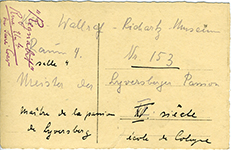 Wallraf-Richartz Museum
Saal 4.
salle
Nr. 153
Meister der Lyversberger Passion
Maître de la passion
de Lyversberg
XV siècle
école de Cologne